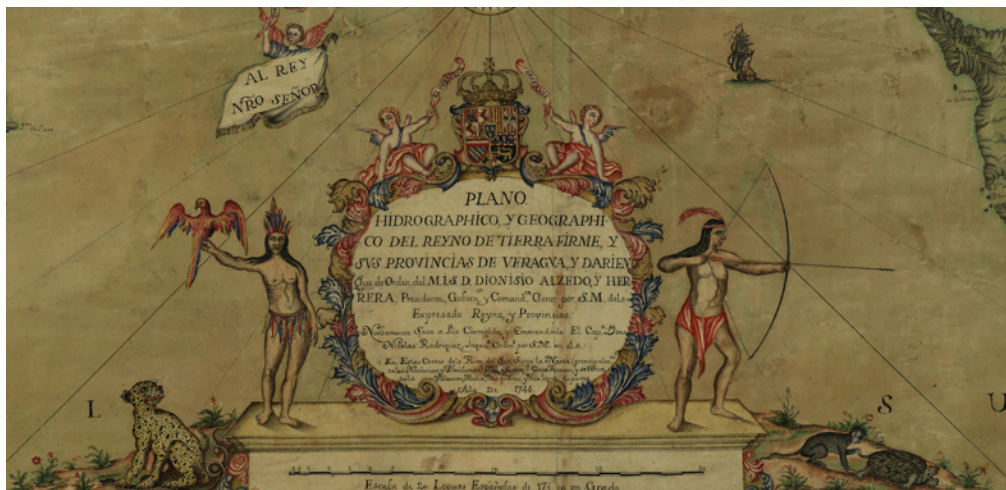 AL REY
NRO SEÑOR
PLANO
HIDROGRAPHICO, Y GEOGRAPHI
CO DEL REYNO DE TIERRA FIRME, Y
SVS PROVINCIAS DE VERAGVA, Y DARIEN
Que de Orden del M.I.S D. DIONISIO ALZEDO, Y HER
RERA, Presidente, Govern.or y Comand.te Gener.l por S.M. del
Expresado Reyno, y Provincias.
Nuebamente Saca a Luz Corregido, y Enmendado El Cap.n Don
Nicolas Rodriguez, Ingen.o Ordin.o por S.M. en
En Estas Costas de la Mar del Sur
Año De 1744
L S U
Escala de 20 Leguas Españolas de 17½ en un Grado